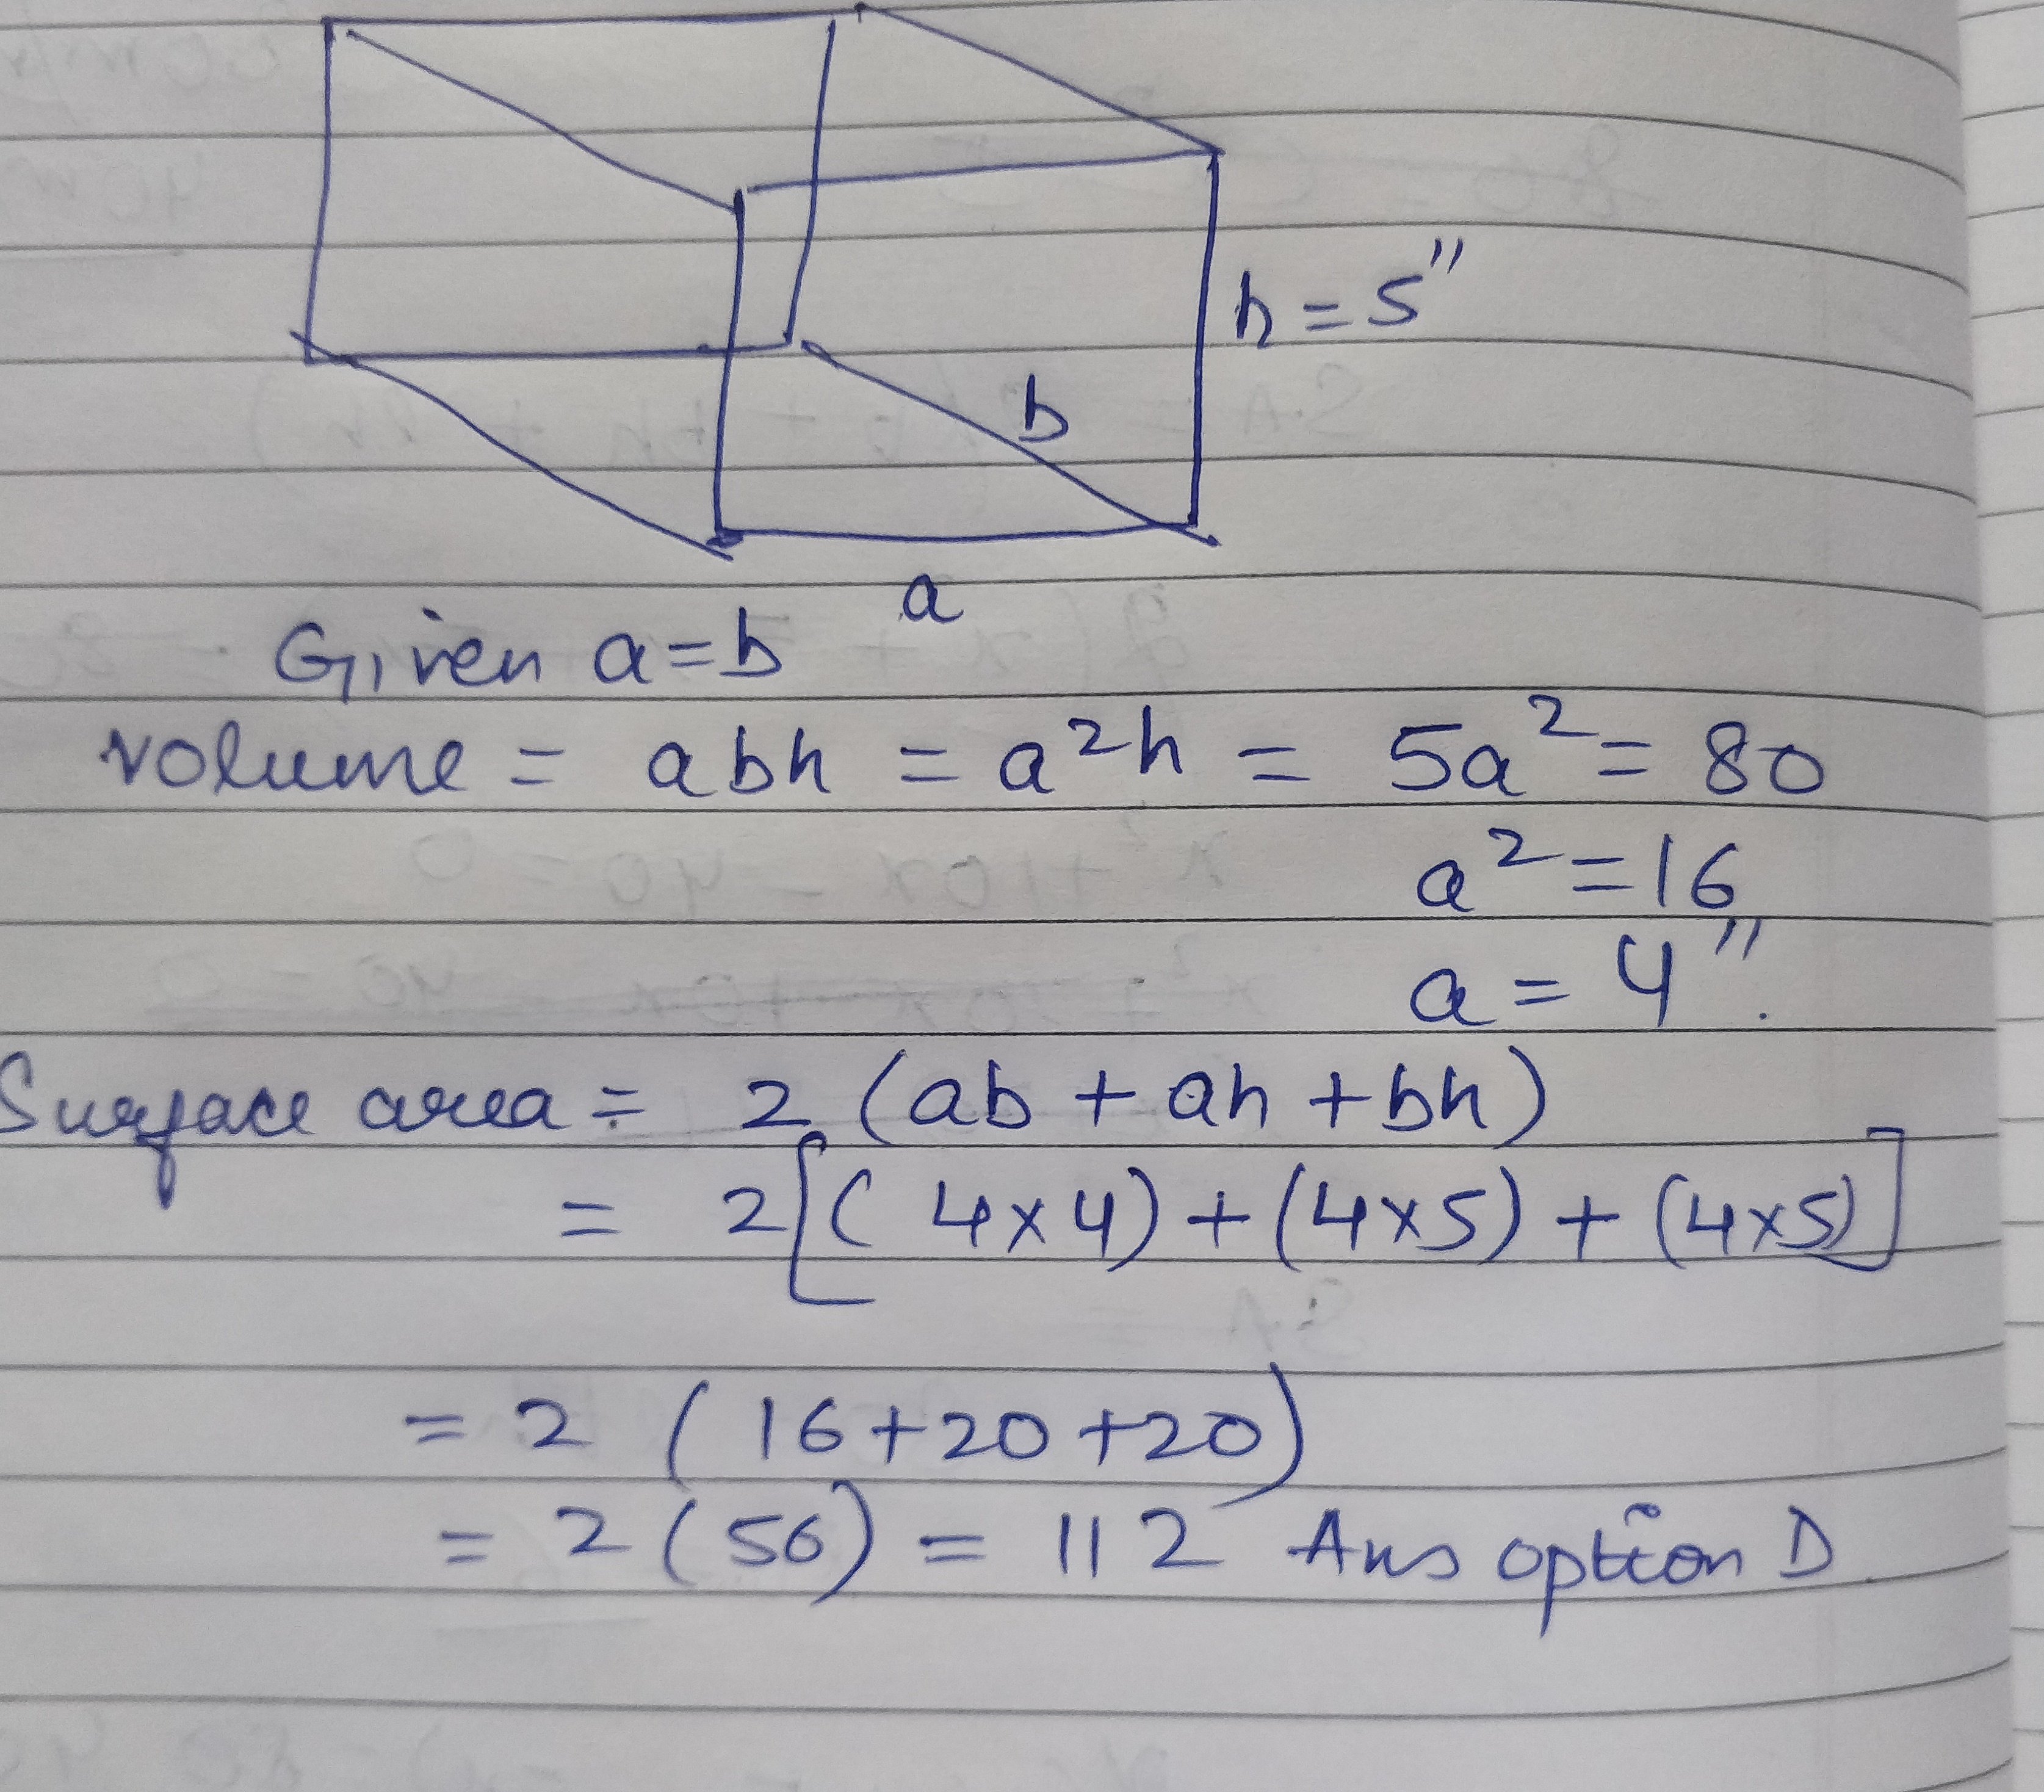 h = 5"
b
a
Given a=b
volume = abh = a²h = 5a² = 80
a² = 16
a = 4".
Surface area = 2 (ab + ah + bh)
= 2[( 4x4) + (4x5) + (4x5)]
= 2 ( 16+20+20)
= 2 (56) = 112 Ans option D